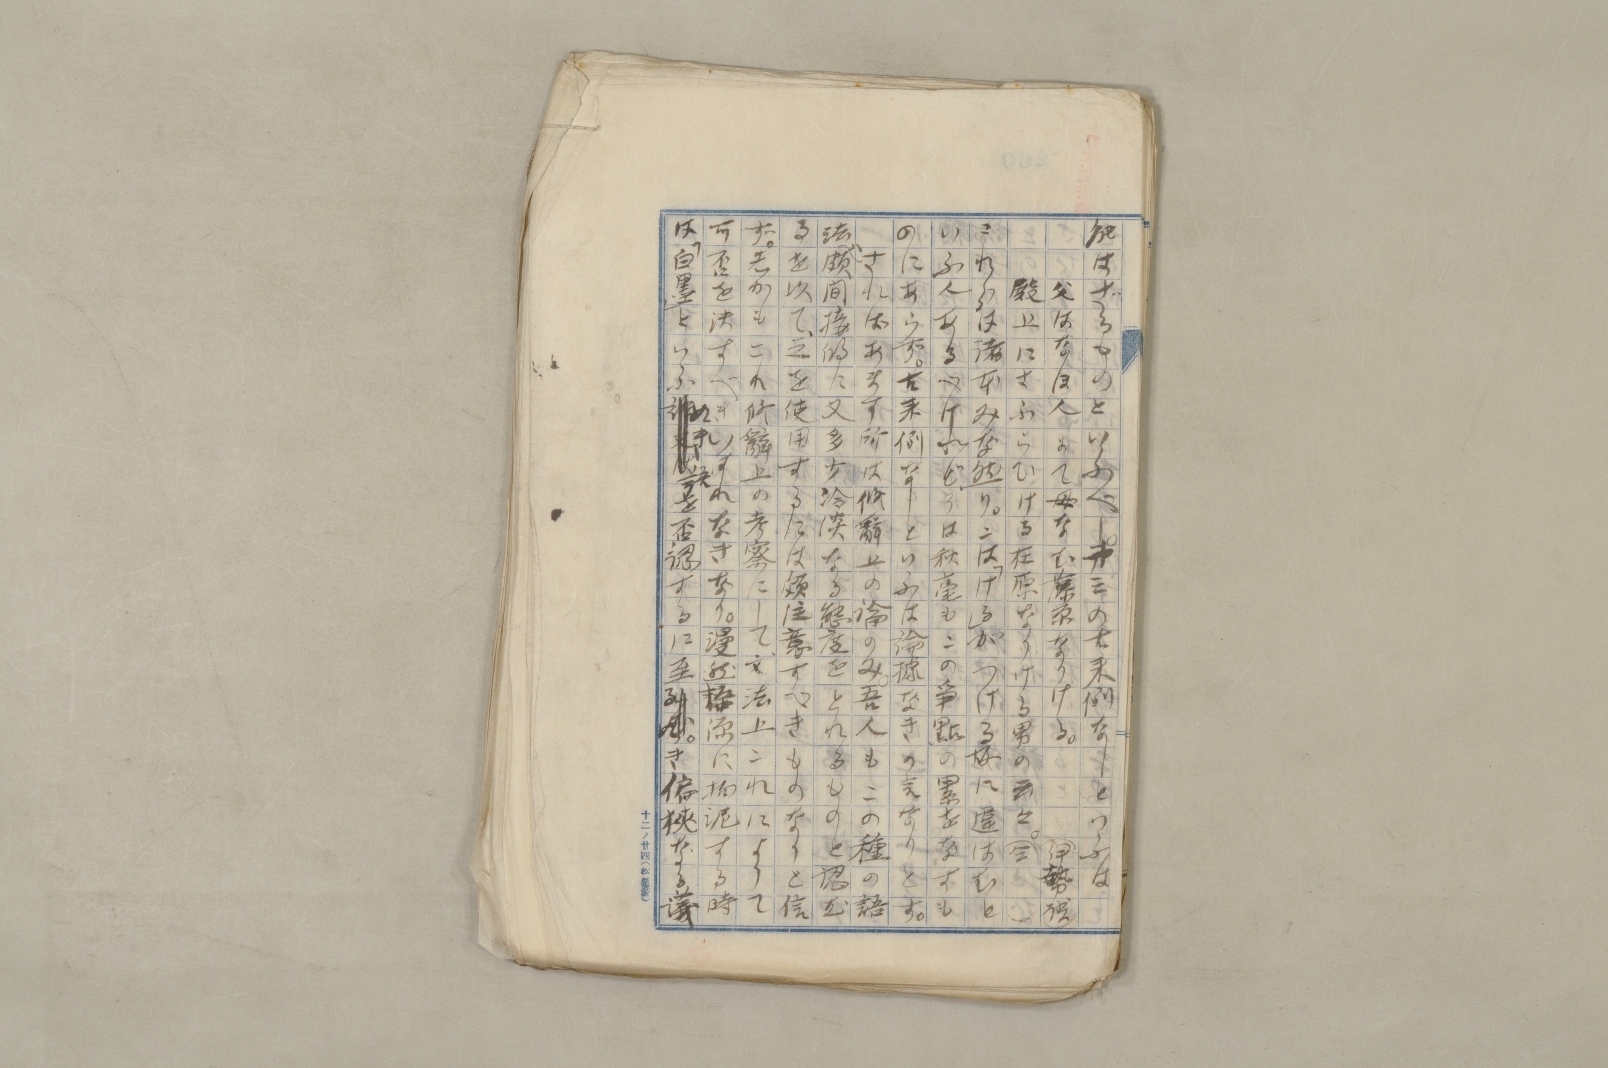 能はざるものといふべし。第三の古来例なしといふは
父はなほ人にて母なむ藤原なりける。(伊勢物)
殿上にさふらひける在原なりける男の云々。(仝)
これらは諸本みな然り。こは「ける」がつける故に違はむと
いふ人あるべけれど、そは秋毫もこの爭點の累をなすも
のにあらず。古来例なしといふは論據なきの言なりとす。
さればあます所は修辭上の論のみ。吾人もこの種の語
法が頗間接的に又多少冷淡なる態度をとれるものと認む
るを以て、之を使用するには頗注意すべきものなりと信
ず。若かもこれ修辭上の考察にして、文法上これによりて
可否を決すべきいすれなきなり。漫然語源に拘泥する時
は「白墨」といふ如き語を否認するに至るべき偏狹なる議
十二ノ廿四(松屋製)